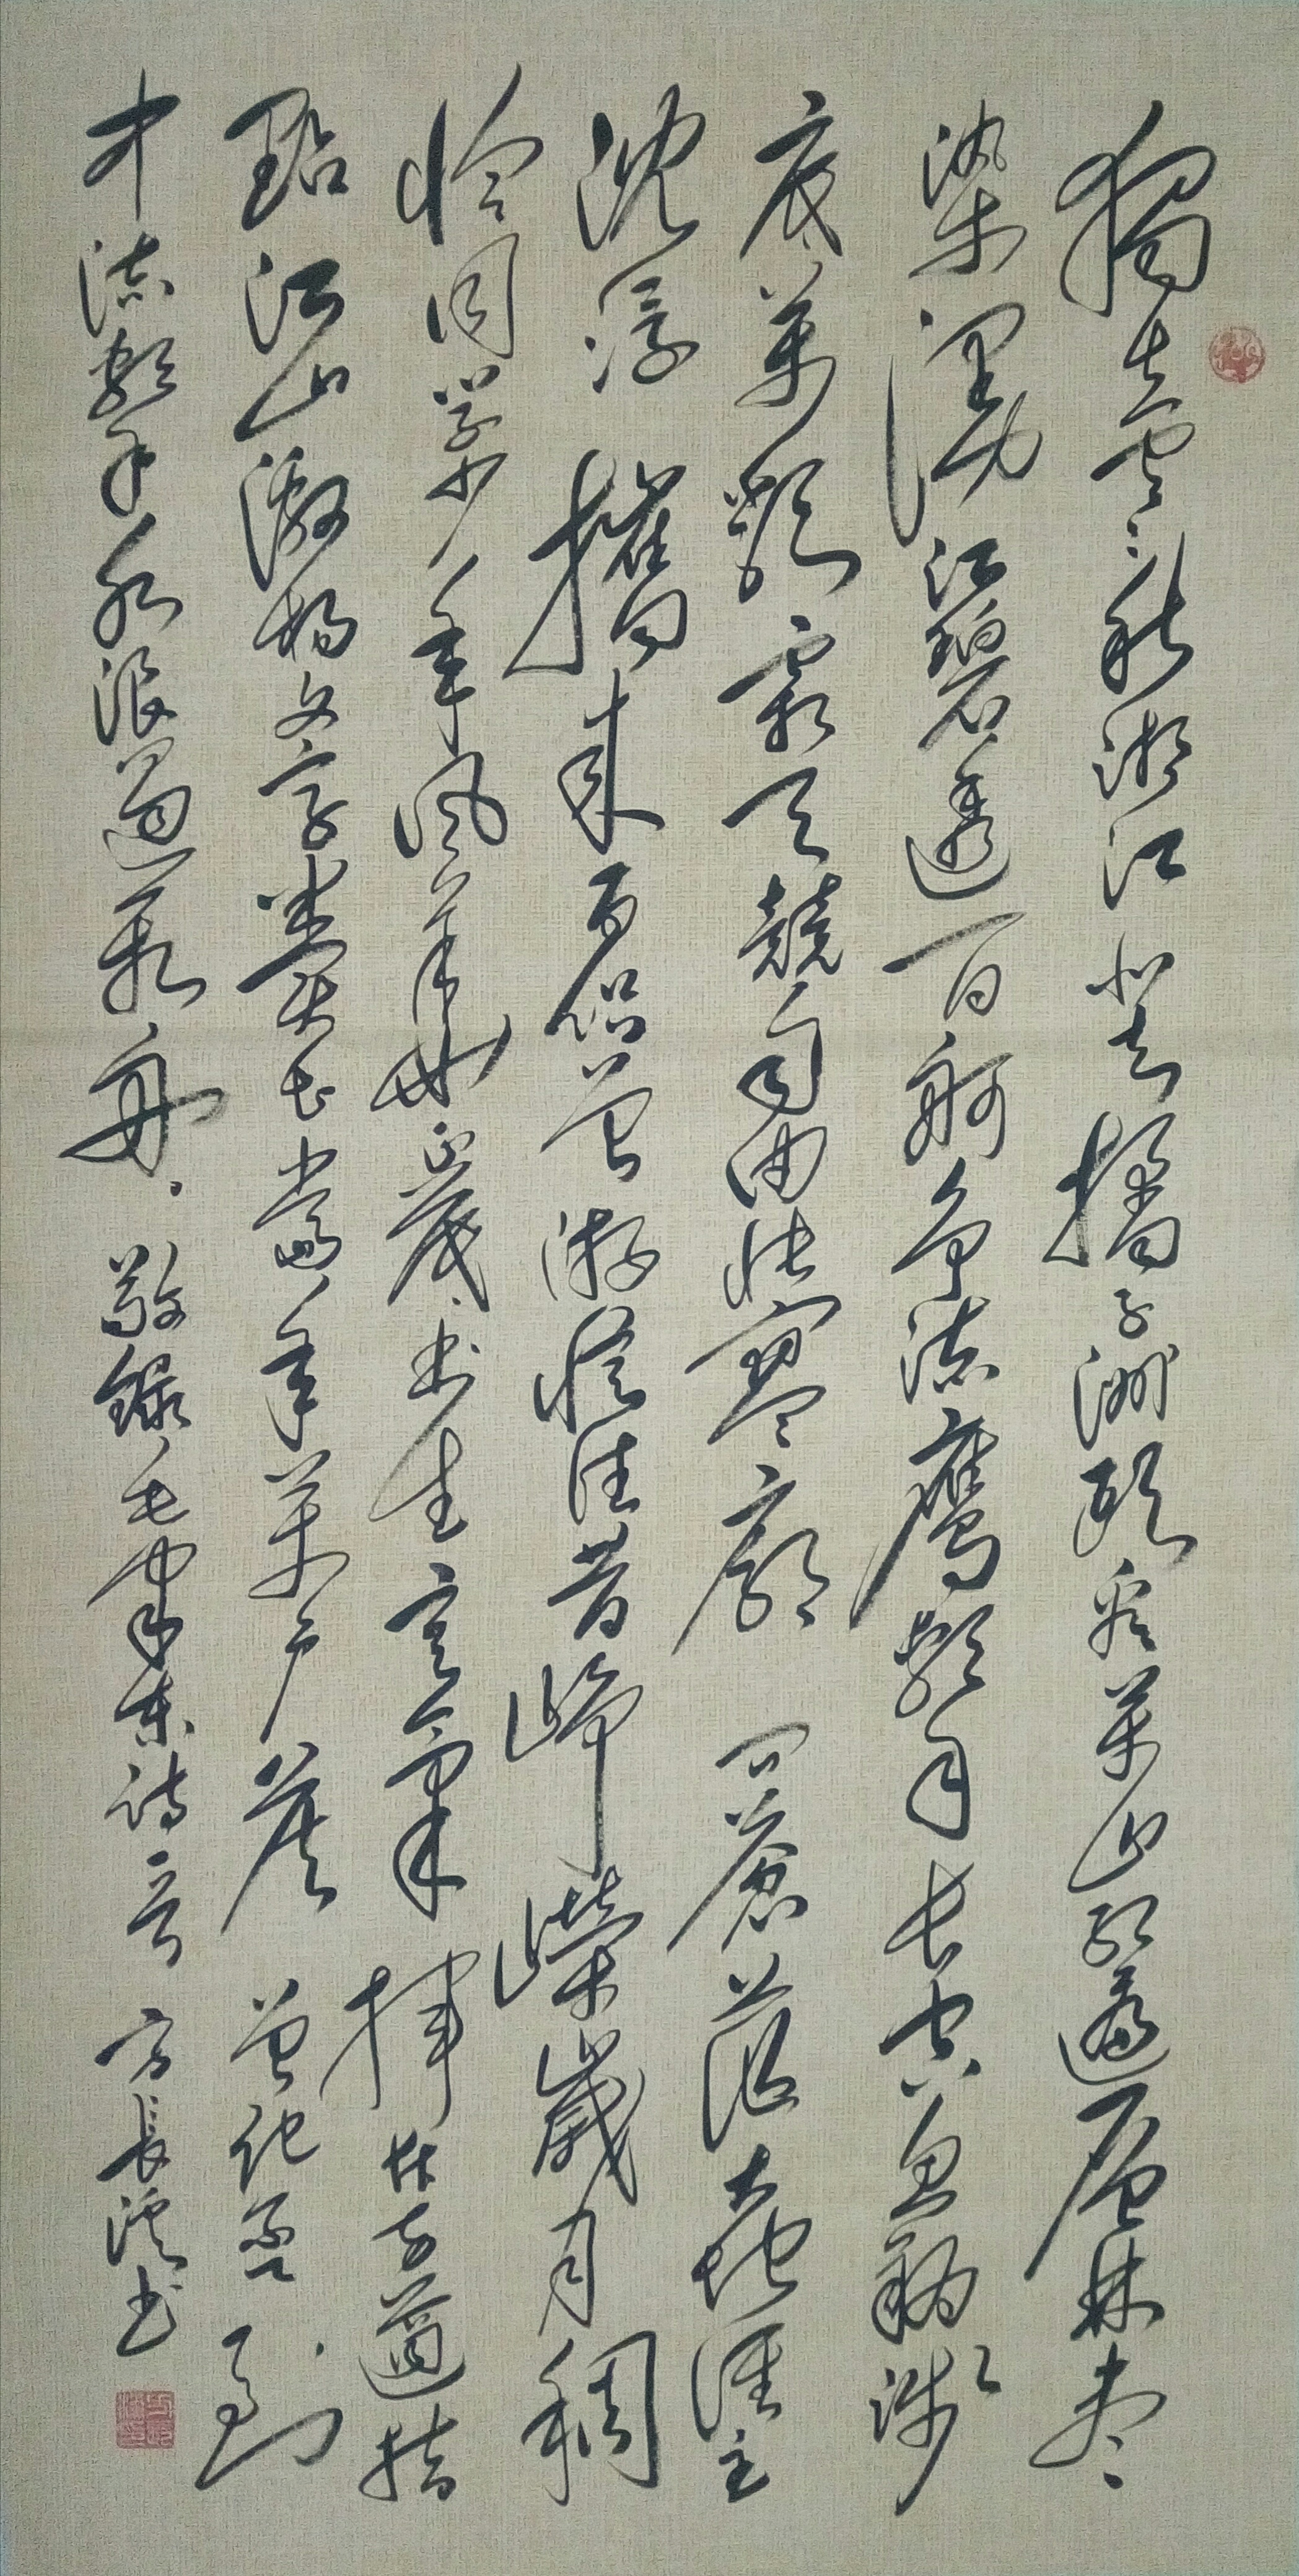 獨立寒秋湘江北去橘子洲頭看萬山紅遍層林盡
染漫江碧透百舸爭流鷹擊長空魚翔淺
底萬類霜天競自由悵寥廓問蒼茫大地誰主
沈浮攜來百侶曾游憶往昔崢嶸歲月稠
恰同學少年風華正茂書生意氣揮斥方遒指
點江山激揚文字糞土當年萬戶侯曾記否到
中流擊水浪遏飛舟敬錄毛澤東詩一首方長書